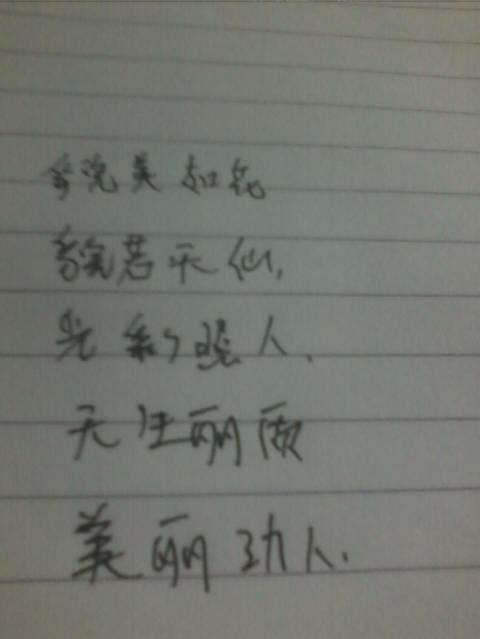 貌美如花
貌若天仙,
光彩照人.
天生丽质
美丽动人.